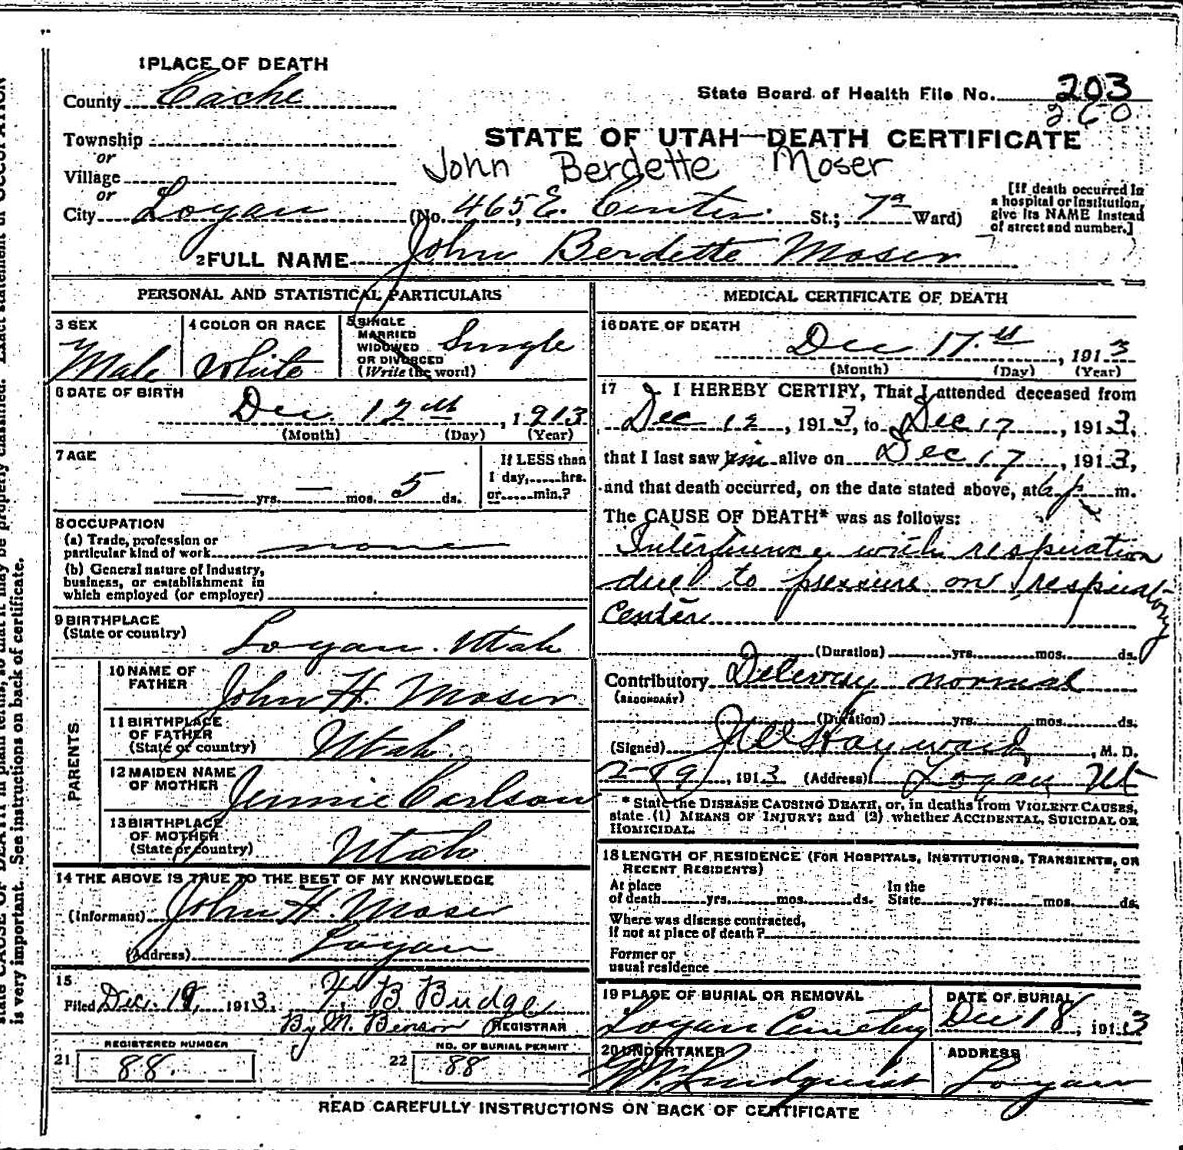 1 PLACE OF DEATH
County Cache
State Board of Health File No. 203
260
Township
or
Village
or
STATE OF UTAH—DEATH CERTIFICATE
John Berdette Moser
City Logan (No. 465 E. Center St.; 7th Ward)
[If death occurred in
a hospital or institution,
give its NAME instead
of street and number.]
2 FULL NAME John Berdette Moser
PERSONAL AND STATISTICAL PARTICULARS
3 SEX
Male
4 COLOR OR RACE
White
5 SINGLE
MARRIED
WIDOWED
OR DIVORCED
(Write the word)
Single
6 DATE OF BIRTH
Dec 12th, 1913
(Month) (Day) (Year)
7 AGE
— yrs. — mos. 5 ds.
If LESS than
1 day, hrs.
or min.?
8 OCCUPATION
(a) Trade, profession or
particular kind of work none
(b) General nature of industry,
business, or establishment in
which employed (or employer)
9 BIRTHPLACE
(State or country) Logan. Utah
PARENTS
10 NAME OF
FATHER John H. Moser
11 BIRTHPLACE
OF FATHER
(State or country) Utah
12 MAIDEN NAME
OF MOTHER Jennie Carlson
13 BIRTHPLACE
OF MOTHER
(State or country) Utah
14 THE ABOVE IS TRUE TO THE BEST OF MY KNOWLEDGE
(Informant) John H Moser
(Address) Logan
15
Filed Dec. 19, 1913. B Budge
By M. Benson REGISTRAR
21 REGISTERED NUMBER
88.
22 NO. OF BURIAL PERMIT
88
MEDICAL CERTIFICATE OF DEATH
16 DATE OF DEATH
Dec 17th, 1913
(Month) (Day) (Year)
17 I HEREBY CERTIFY, That I attended deceased from
Dec 12, 1913, to Dec 17, 1913,
that I last saw him alive on Dec 17, 1913,
and that death occurred, on the date stated above, at 6 p m.
The CAUSE OF DEATH* was as follows:
Interference with respiration
due to pressure on respiratory
center
(Duration) yrs. mos. ds.
Contributory Delivery normal
(SECONDARY)
(Duration) yrs. mos. ds.
(Signed) Hayward, M. D.
1913 (Address) Logan Ut
* State the DISEASE CAUSING DEATH, or, in deaths from VIOLENT CAUSES,
state (1) MEANS OF INJURY; and (2) whether ACCIDENTAL, SUICIDAL OR
HOMICIDAL.
18 LENGTH OF RESIDENCE (FOR HOSPITALS, INSTITUTIONS, TRANSIENTS, OR
RECENT RESIDENTS)
At place
of death yrs. mos. ds.
In the
State yrs. mos. ds.
Where was disease contracted,
if not at place of death?
Former or
usual residence
19 PLACE OF BURIAL OR REMOVAL
Logan Cemetery
DATE OF BURIAL
Dec 18, 1913
20 UNDERTAKER
Lundquist
ADDRESS
Logan
READ CAREFULLY INSTRUCTIONS ON BACK OF CERTIFICATE
is very important. See instructions on back of certificate.